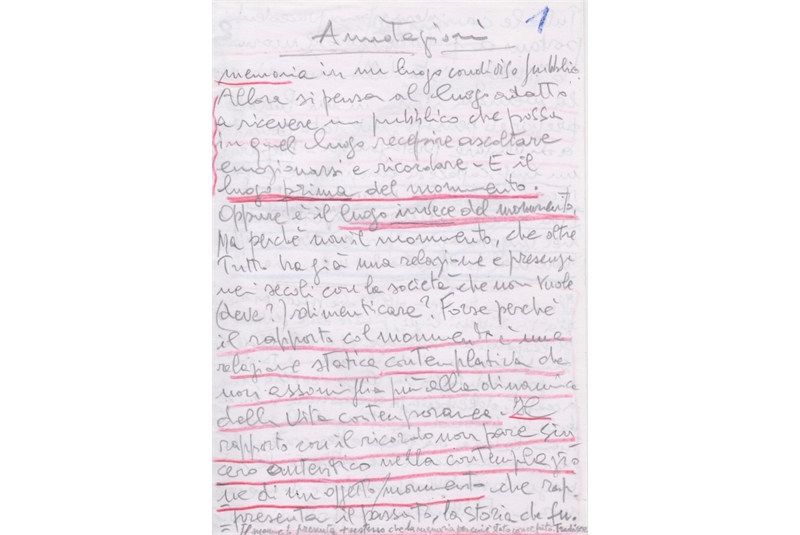 1
Annotazioni
memoria in un luogo condiviso pubblico.
Allora si pensa al luogo adatto
a ricevere un pubblico che possa
in quel luogo recepire ascoltare
emozionarsi e ricordare - È il
luogo prima del monumento.
Oppure è il luogo invece del monumento.
Ma perchè non il monumento, che oltre
tutto ha già una relazione e presenza
nei secoli con la società che non vuole
(deve?) dimenticare? Forse perchè
il rapporto col monumento è una
relazione statica contemplativa che
non assomiglia più alla dinamica
della vita contemporanea - Il
rapporto con il ricordo non pare sin
cero autentico nella contemplazio
ne di un oggetto/monumento che rap-
presenta il passato, la storia che fu.
= Il monumento presenta che la memoria